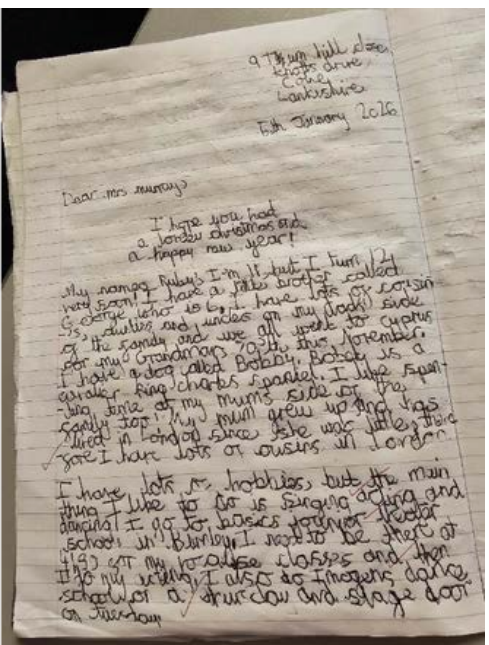 9 Thrum hill close,
Knotts drive
Colne,
Lankishire
5th January 2026
Dear mrs murray,
I hope you had
a lovley christmas and
a happy new year!
My names Ruby's I'm 11 but I turn 12
very soon! I have a little brother called
George who is 6, I have lots of cousin
's, aunties and uncles on my dads side
of the family and we all went to cyprus
for my Grandmars 70th this November.
I have a dog called Bobby. Bobby is a
cavalier king charles spaniel. I like spen-
ding time at my mums side of the
family too! My mum grew up and has
lived in London since she was little, there
fore I have lots of cusins in London
I have lots of hobbies, but the main
thing I like to do is singing acting and
dancing! I go to basics theater
school in Burnley, I need to be there at
for my classes and then
I do my acting, I also do Imogens dance
school on a thursday and stage door
on tuesday